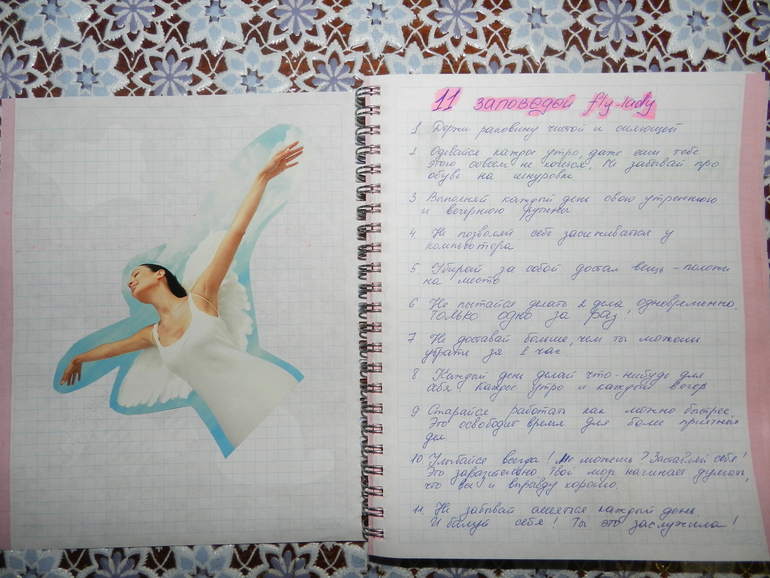 11 заповедей fly-lady
1 Держи раковину чистой и сияющей
2 Одевайся каждое утро, даже если тебе
этого совсем не хочется. Не забывай про
обувь на шнуровке
3 Выполняй каждый день свою утреннюю
и вечернюю рутины
4 Не позволяй себе засиживаться у
компьютера
5 Убирай за собой достал вещь - положи
на место
6 Не пытайся делать 2 дела одновременно.
Только одно за раз
7 Не доставай больше, чем ты можешь
убрать за 1 час
8 Каждый день делай что-нибудь для
себя Каждое утро и каждый вечер
9 Старайся работать как можно быстрее.
Это освободит время для более приятных
дел
10 Улыбайся всегда! Не можешь? Заставляй себя!
Это заразительно Твой мозг начинает думать,
что все и вправду хорошо.
11. Не забывай смеяться каждый день
И балуй себя! Ты это заслужила!